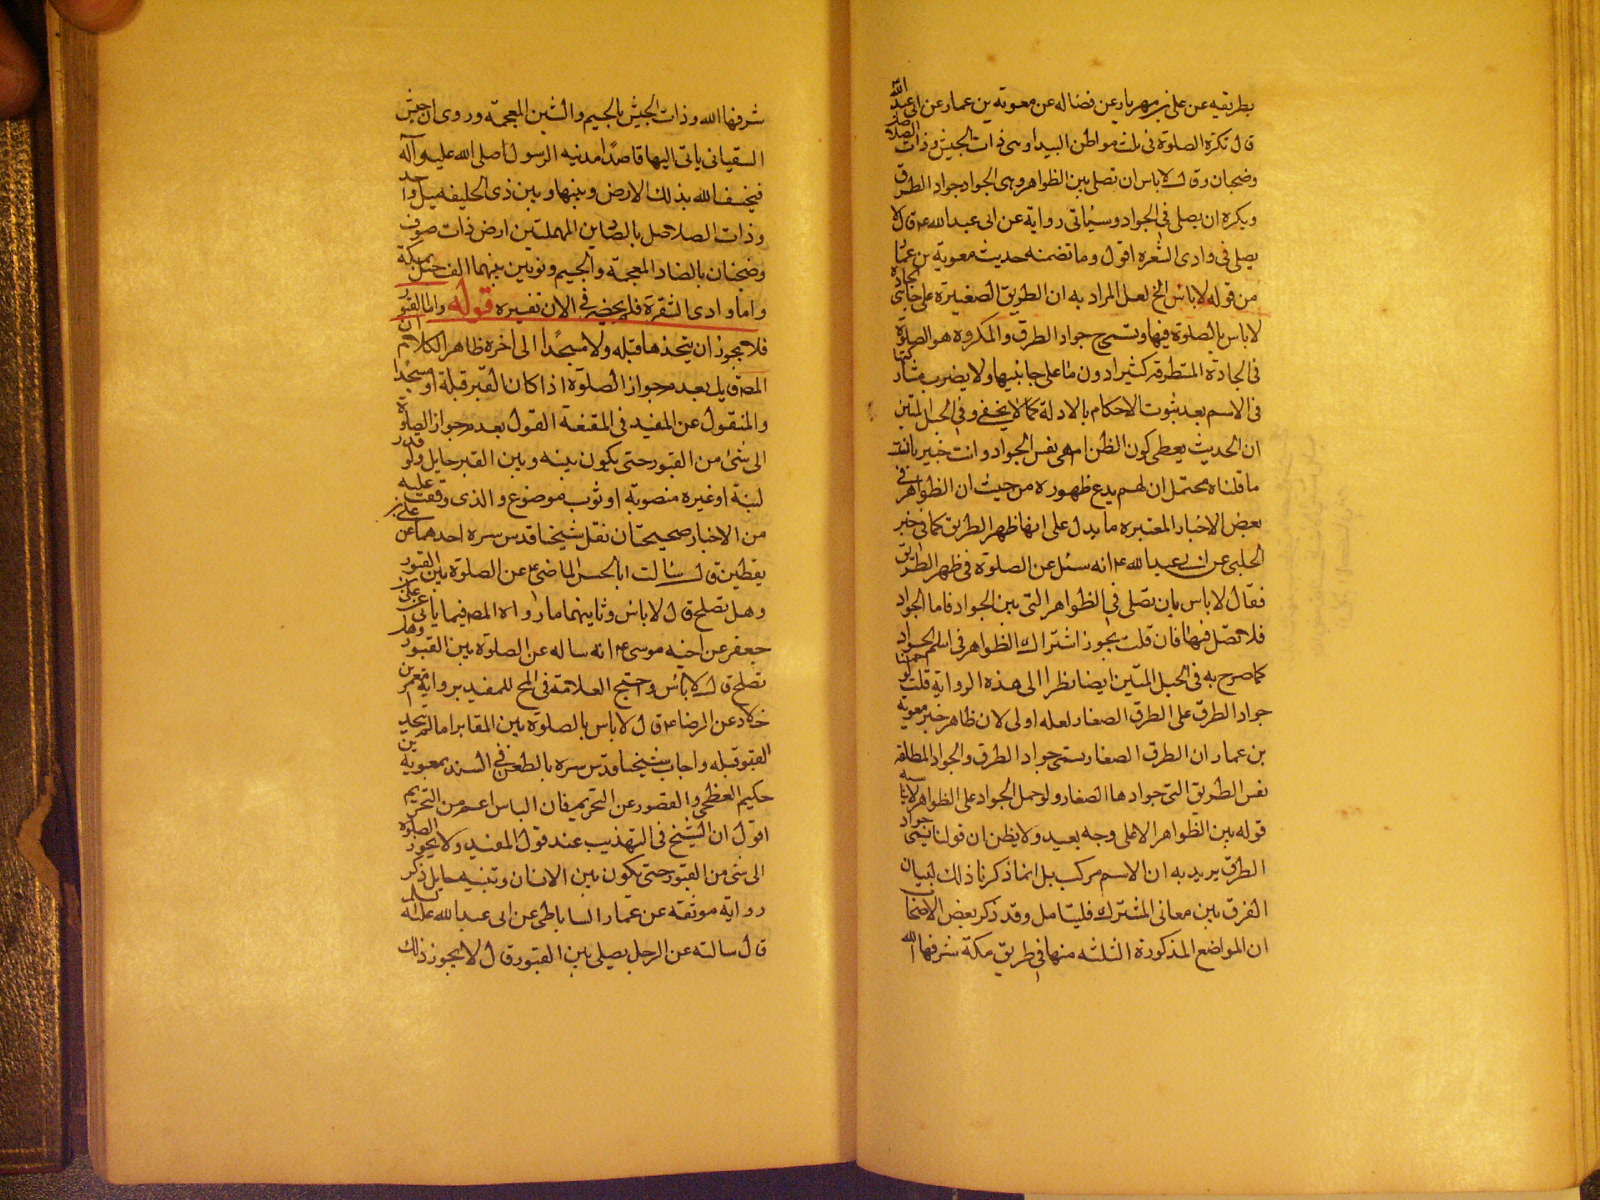 بطريقه عن علي بن مهزيار عن فضاله عن معوية بن عمار عن ابي عبد الله
قال تكره الصلوة في ثلث مواطن البيدا وهي ذات الجيش وذات الصلاصل
وضجنان وقال لا باس ان تصلى بين الظواهر وهي الجواد جواد الطرق
ويكره ان يصلى في الجواد وسياتي رواية عن ابي عبد الله ع قال لا
يصلى في وادى الشقره اقول وما تضمنه حديث معوية بن عمار
من قوله لا باس الخ لعل المراد به ان الطريق الصغيرة على جانبي الجادة
لا باس بالصلوة فيها وتسمى جواد الطرق والمكروه هو الصلوة
في الجادة المستطرقة كثيرا دون ما على جانبيها ولا يضر
في الاسم بعد ثبوت الاحكام بالادلة كما لا يخفى وفي الحبل المتين
ان الحديث يعطى كون الظواهر هي نفس الجواد وانت خبير بان
ما قلناه محتمل ان لم يدع ظهوره من حيث ان الظواهر في
بعض الاخبار المعتبره ما يدل على انها ظهر الطريق كما في خبر
الحلبي عن ابي عبد الله ع انه سئل عن الصلوة في ظهر الطريق
فقال لا باس بان تصلى في الظواهر التي بين الجواد فاما الجواد
فلا تصل فيها فان قلت يجوز اشتراك الظواهر في اسم الجواد
كما صرح به في الحبل المتين ايضا نظرا الى هذه الرواية قلت
جواد الطرق على الطرق الصغار لعله اولى لان ظاهر خبر معوية
بن عمار ان الطرق الصغار تسمى جواد الطرق والجواد المطلقه
نفس الطريق التي جوادها الصغار ولو حمل الجواد على الظواهر لاباه
قوله بين الظواهر الا على وجه بعيد ولا يظن ان قولنا تسمى جواد
الطرق يريد به ان الاسم مركب بل انما ذكرنا ذلك لبيان
الفرق بين معاني المشترك فليتامل وقد ذكر بعض الاصحاب
ان المواضع المذكورة الثلثه منها في طريق مكة شرفها الله
شرفها الله وذات الجيش بالجيم والشين المعجمة وروى ان جيش
السفياني ياتي اليها قاصدا مدنية الرسول صلى الله عليه وآله
فيخسف الله بذلك الارض وبينها وبين ذى الحليفه ميل واحد
وذات الصلاصل بالصادين المهملتين ارض ذات صوت
وضجنان بالضاد المعجمة والجيم ونونين بينهما الف جبل بمكة
واما وادى الشقرة فلم يحضرني الان تفسيره قوله واما القبور
فلا يجوز ان يتخذها قبله ولا مسجدا الى اخره ظاهر الكلام ان
المص قايل بعدم جواز الصلوة اذا كان القبر قبلة او مسجدا
والمنقول عن المفيد في المقنعة القول بعدم جواز الصلوة
الى شئ من القبور حتى يكون بينه وبين القبر حايل ولو قدر
لبنة او غيره منصوبة او ثوب موضوع والذى وقفت عليه
من الاخبار صحيحتان نقل شيخنا قدس سره احدهما عن علي بن
يقطين قال سالت ابا الحسن الماضي ع عن الصلوة بين القبور
وهل تصلح قال لا باس وثانيهما ما رواه المص فيما ياتي عن علي بن
جعفر عن اخيه موسى ع انه ساله عن الصلوة بين القبور وهل
تصلح قال لا باس واحتج العلامة في المخ للمفيد برواية معمر بن
خلاد عن الرضا ع قال لا باس بالصلوة بين المقابر ما لم يتخذ
القبر قبله واجاب شيخنا قدس سره بالطعن في السند بمعوية بن
حكيم الفطحي والقصور عن التحريم فان الباس اعم من التحريم
اقول ان الشيخ في التهذيب عند قول المفيد ولا يجوز الصلوة
الى شئ من القبور حتى يكون بين الانسان وبينه حايل ذكر
رواية موثقه عن عمار الساباطى عن ابي عبد الله عليه السلم
قال سالته عن الرجل يصلى بين القبور قال لا يجوز ذلك